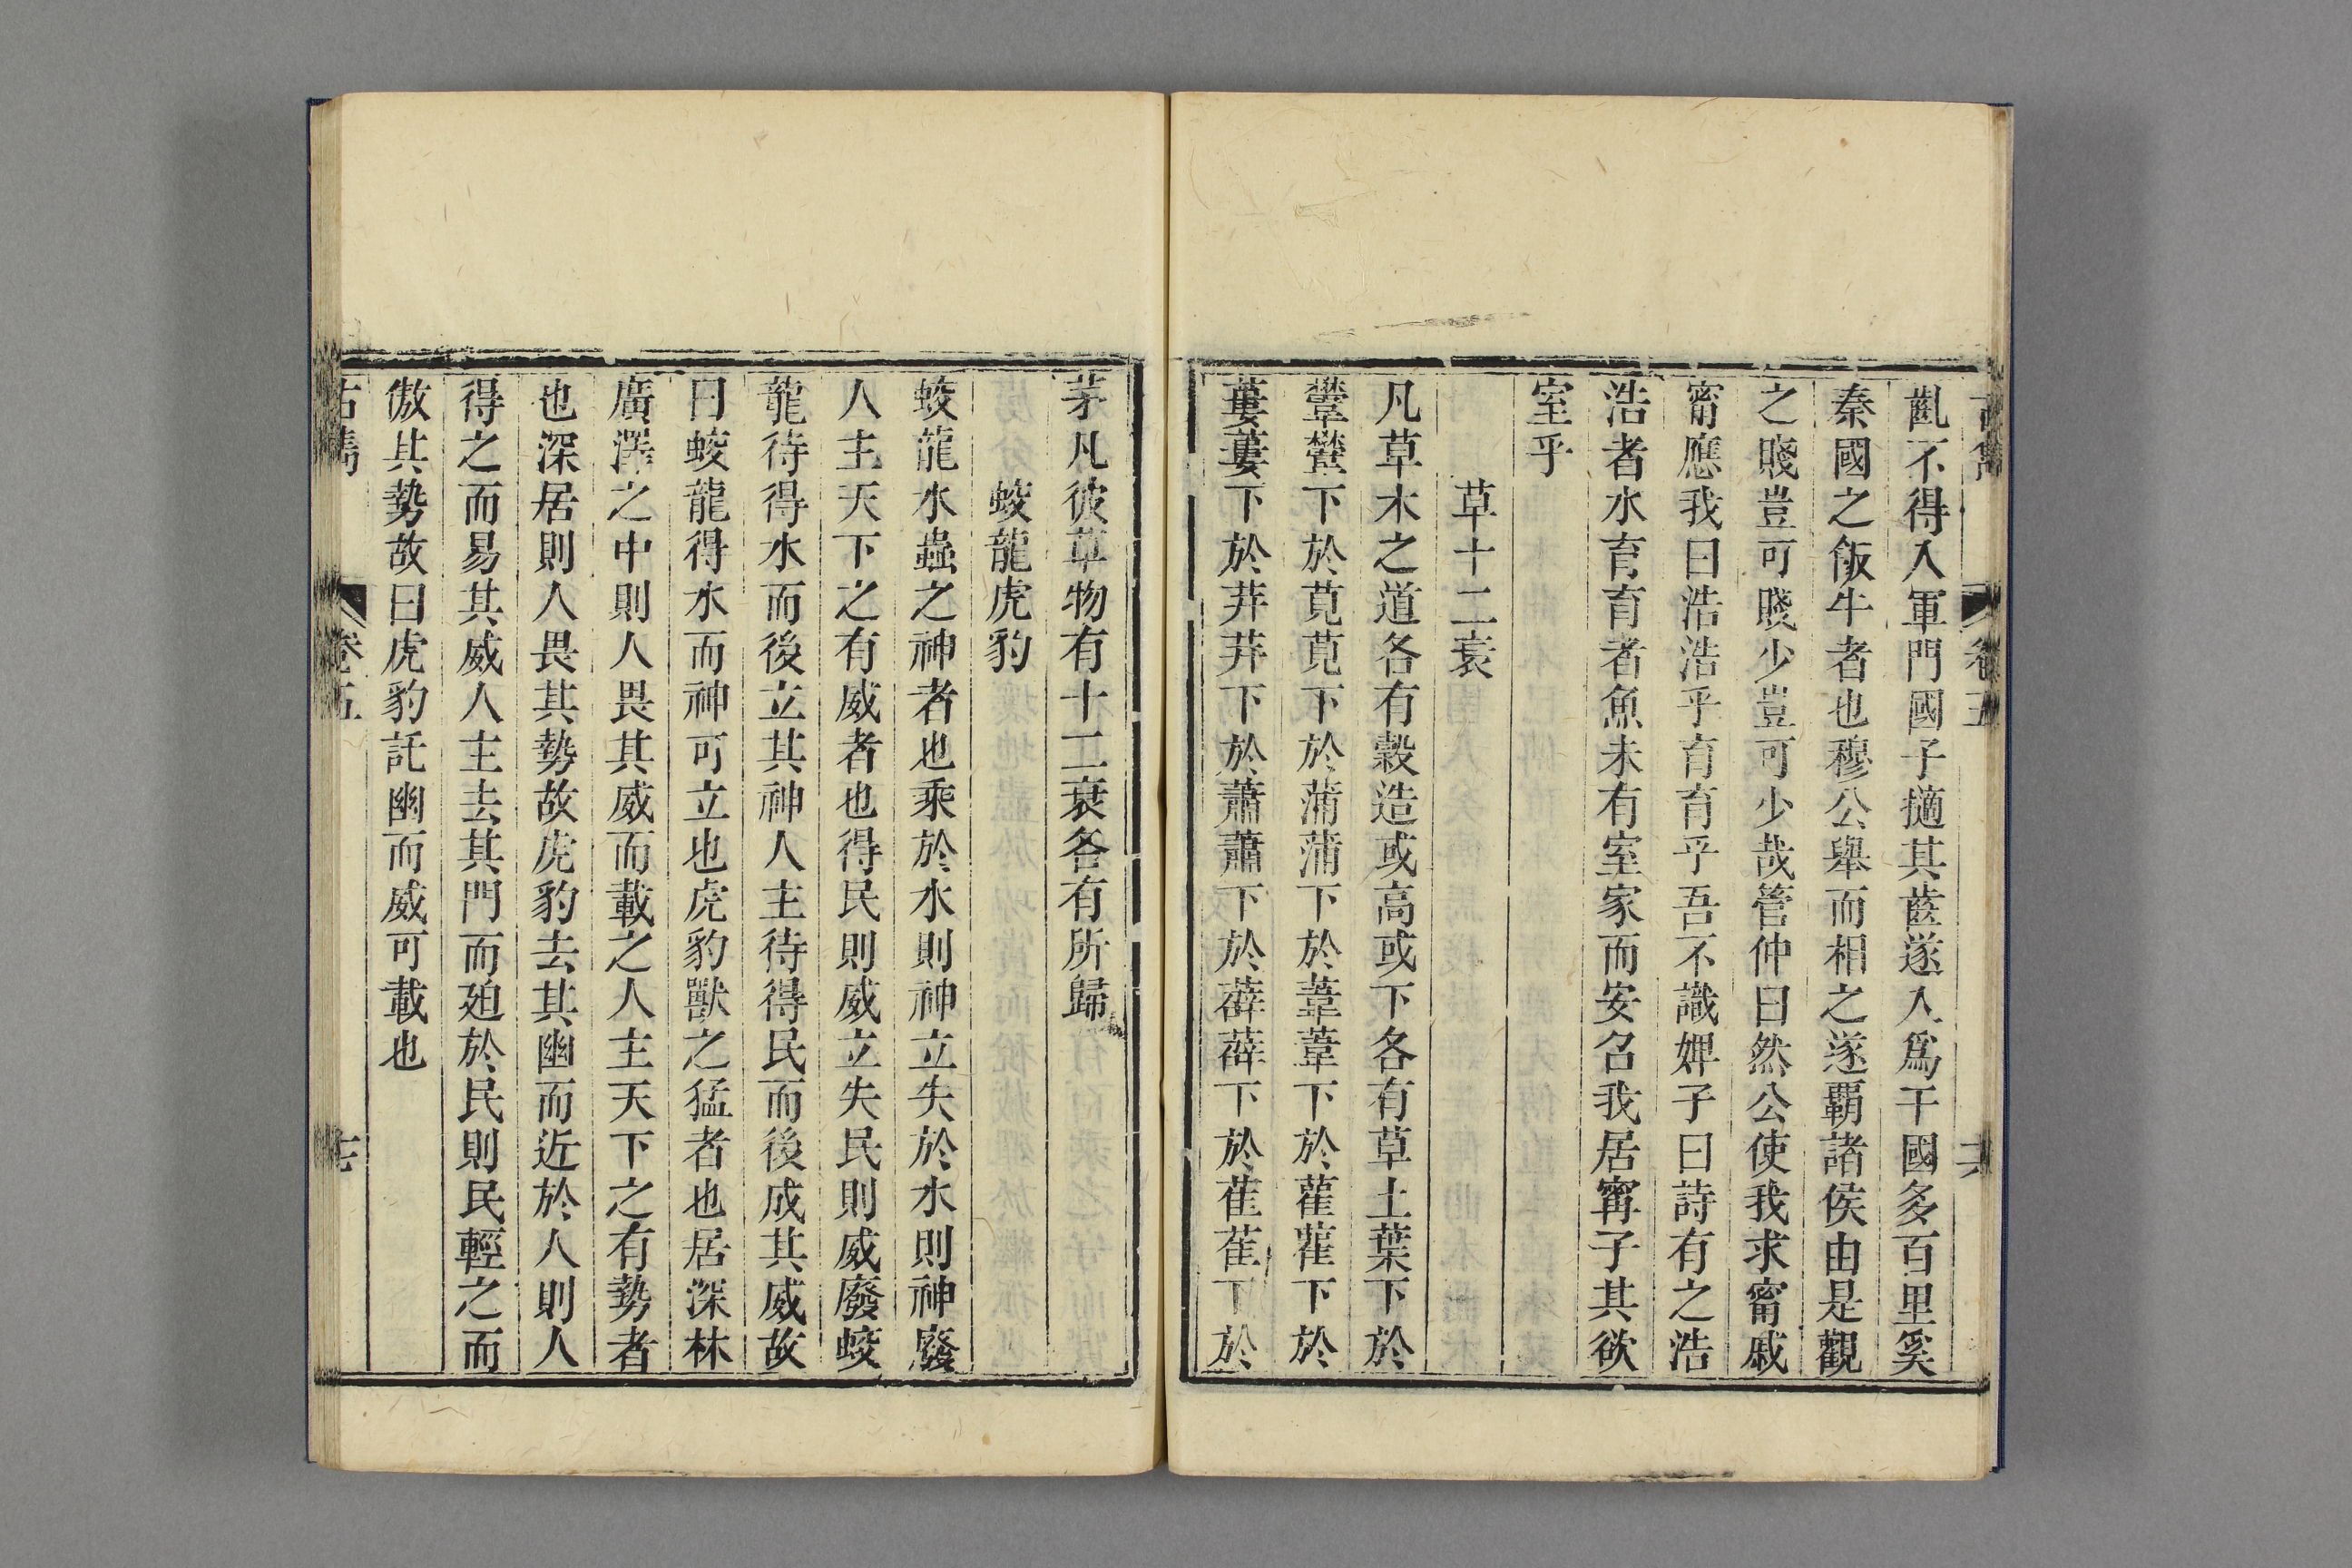 古雋 卷五 六
齓不得入軍門國子擿其齒遂入爲干國多百里奚
秦國之飯牛者也穆公舉而相之遂覇諸侯由是觀
之賤豈可賤少豈可少哉管仲曰然公使我求甯戚
甯應我曰浩浩乎育育乎吾不識婢子曰詩有之浩
浩者水育育者魚未有室家而安召我居甯子其欲
室乎
草十二衰
凡草木之道各有穀造或高或下各有草土葉下於
虆虆下於莧莧下於蒲蒲下於葦葦下於雚雚下於
蔞蔞下於荓荓下於蕭蕭下於薜薜下於萑萑下於
茅凡彼草物有十二衰各有所歸
蛟龍虎豹
蛟龍水蟲之神者也乘於水則神立失於水則神廢
人主天下之有威者也得民則威立失民則威廢蛟
龍待得水而後立其神人主待得民而後成其威故
曰蛟龍得水而神可立也虎豹獸之猛者也居深林
廣澤之中則人畏其威而載之人主天下之有勢者
也深居則人畏其勢故虎豹去其幽而近於人則人
得之而易其威人主去其門而廹於民則民輕之而
傲其勢故曰虎豹託幽而威可載也
古雋 卷五 七